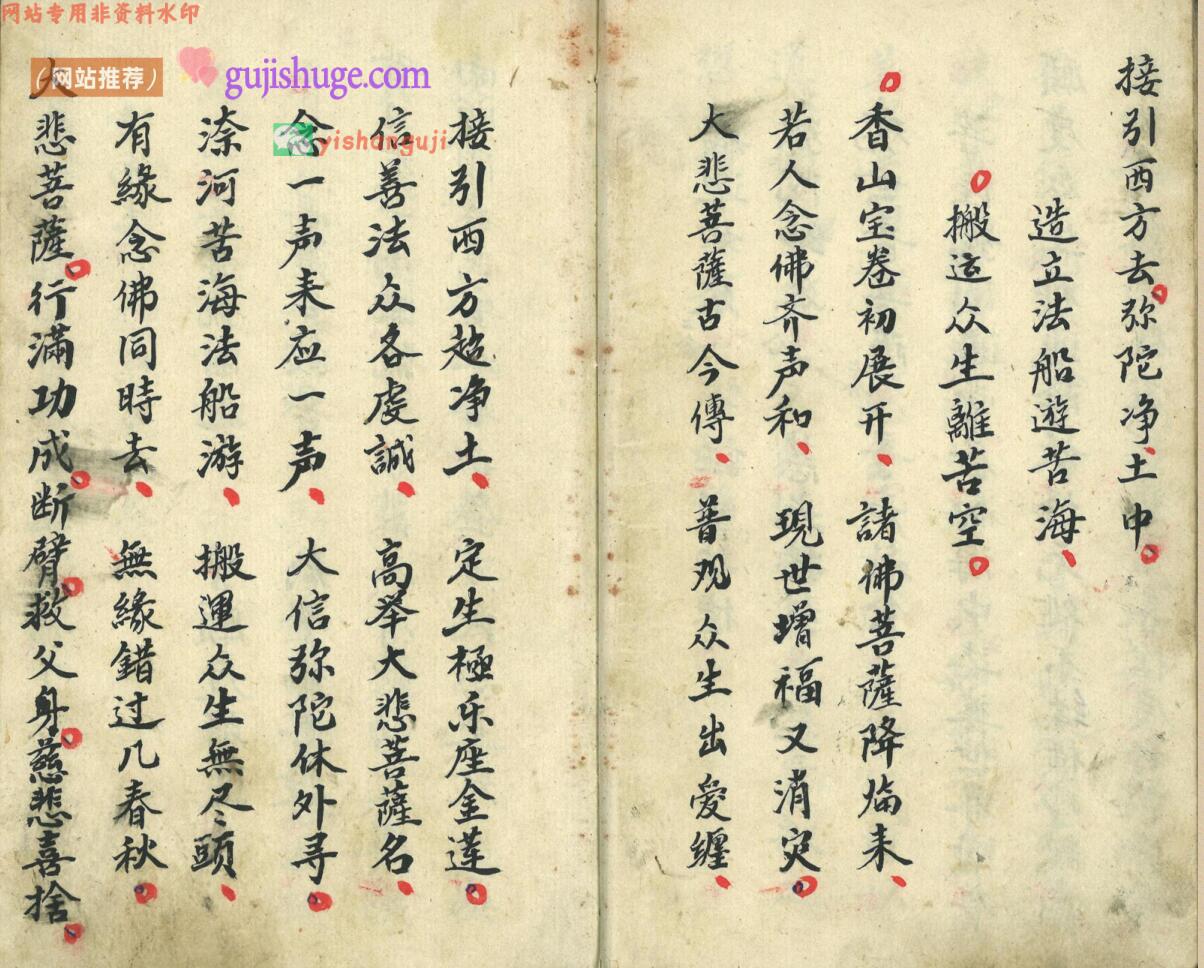 网站专用非资料水印
(网站推荐)
gujishuge.com
yishanguji
接引西方去弥陀净土中
造立法船遊苦海
搬运众生離苦空
香山宝卷初展开 諸佛菩薩降临来
若人念佛齐声和 現世增福又消灾
大悲菩薩古今傳 普观众生出愛纏
接引西方超净土 定生極乐座金莲
信善法众各虔誠 高举大悲菩薩名
念一声来应一声 大信弥陀休外寻
渿河苦海法船游 搬運众生無尽頭
有緣念佛同時去 無緣錯过几春秋
大悲菩薩行滿功成断臂救父身慈悲喜捨